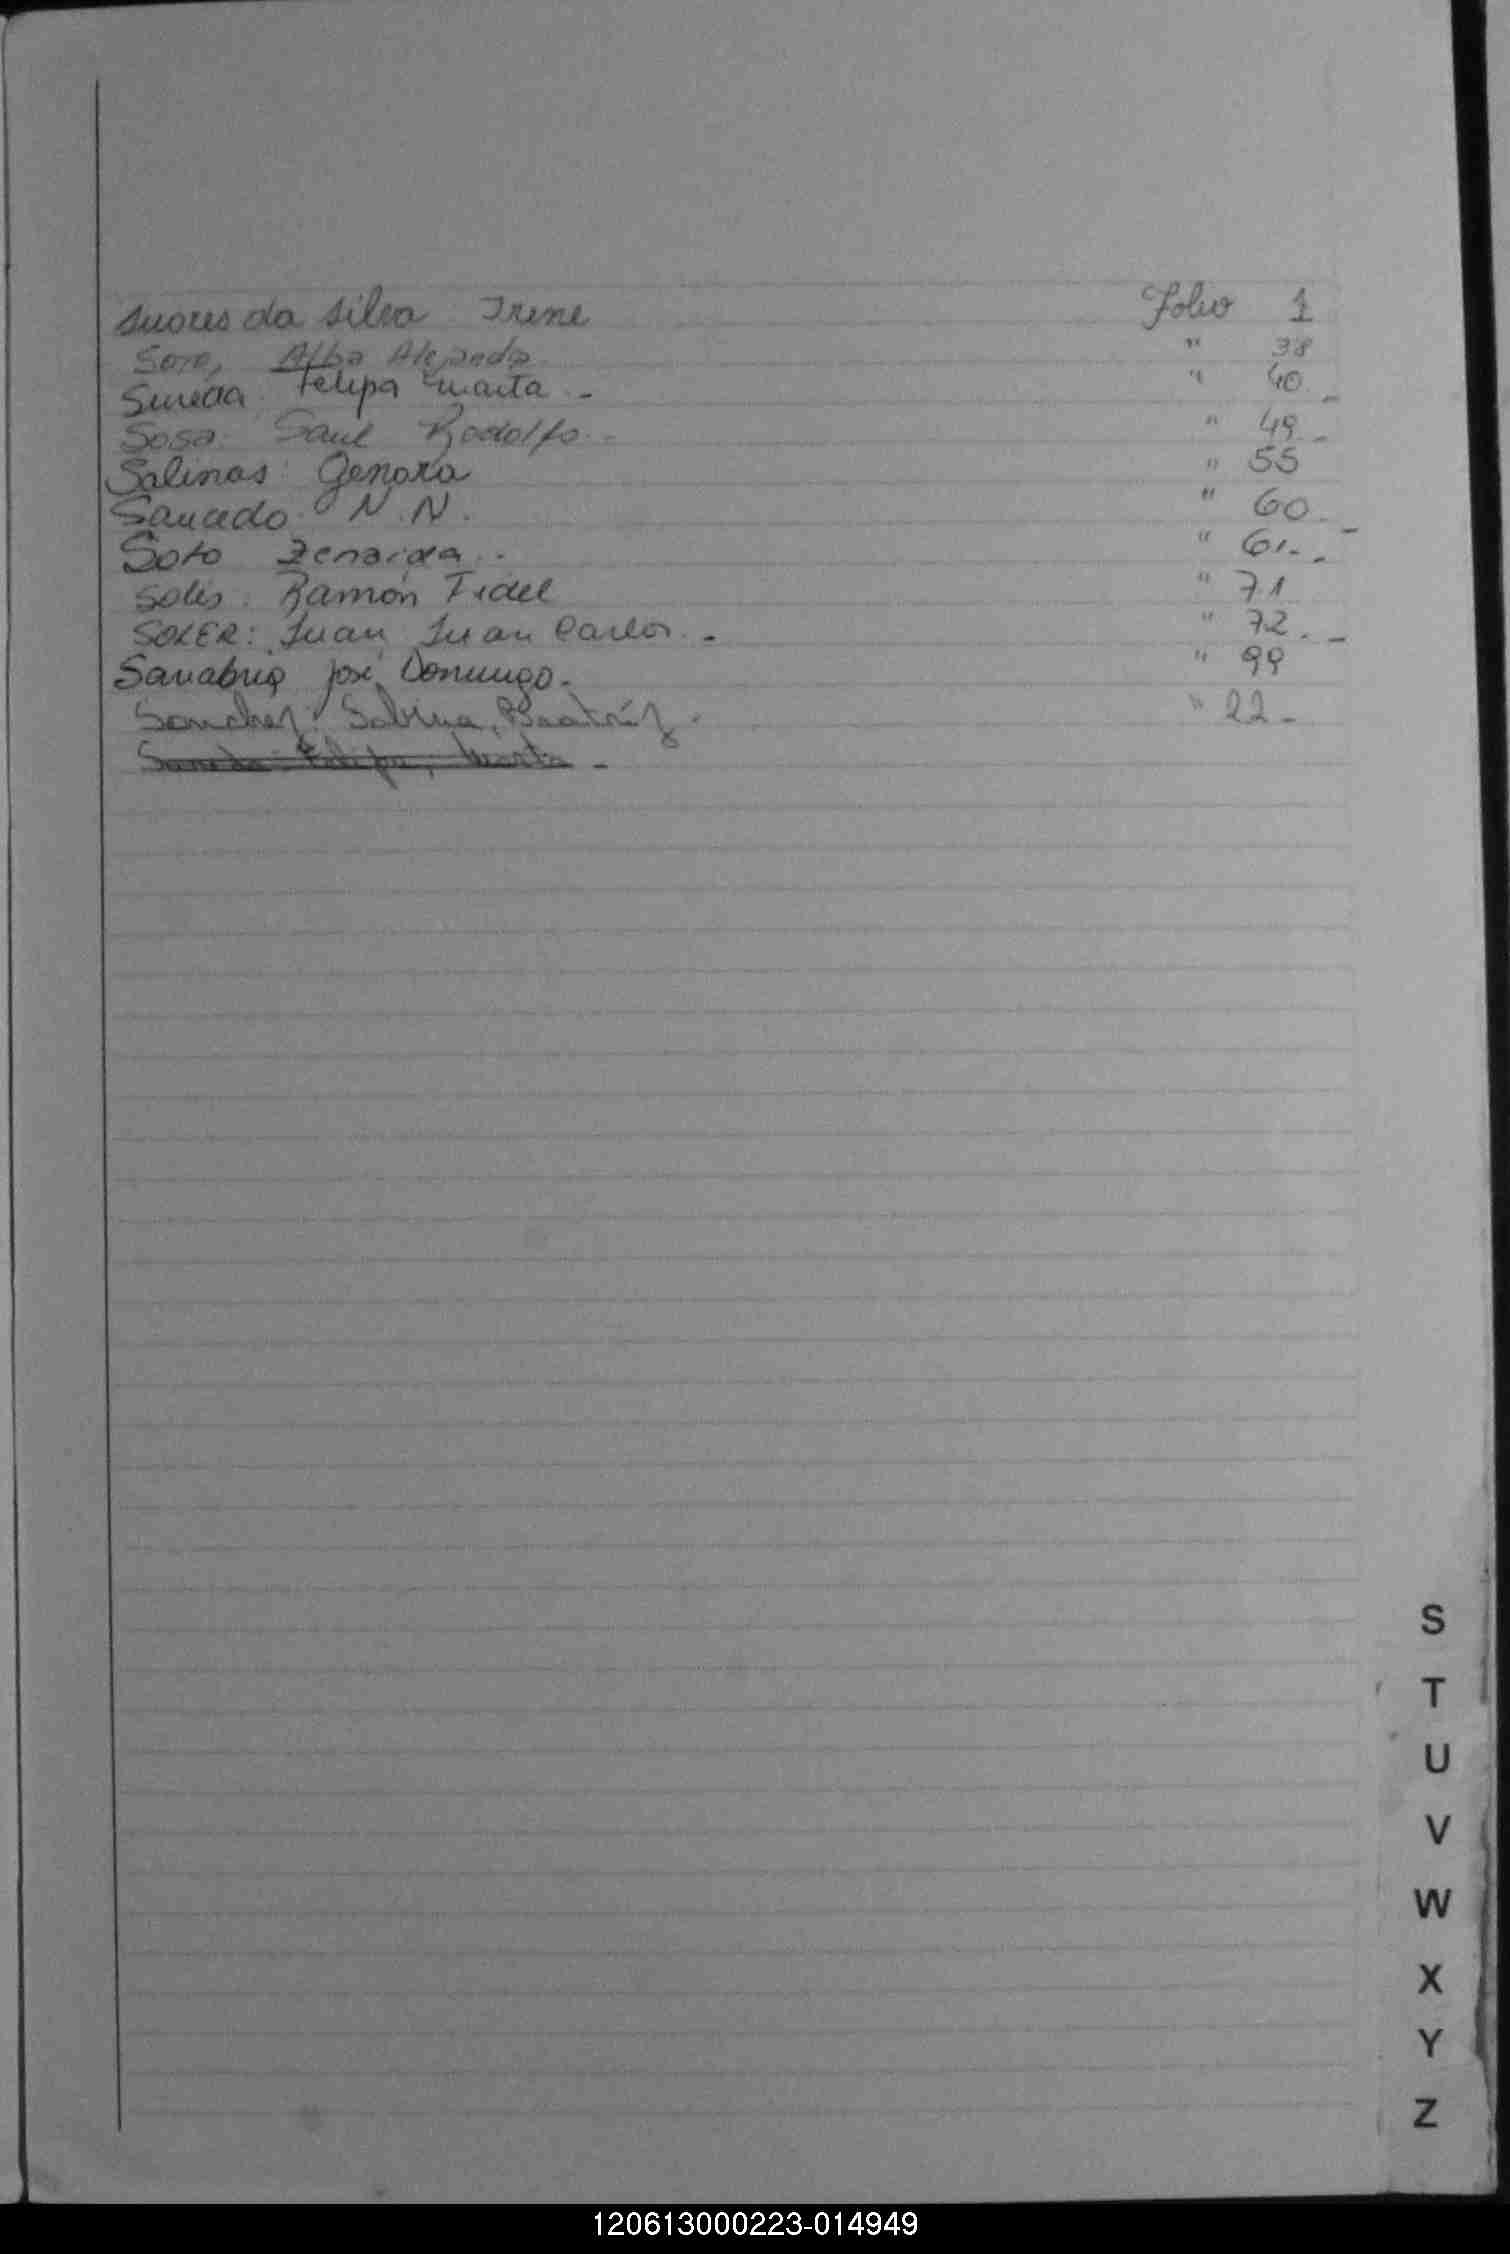 Suares da Silva Irene Folio 1
Soto, Alba Alejandra " 38
Sureda Felipa Marta.- " 40.-
Sosa: Saul Rodolfo.- " 49.-
Salinas: Genara " 55
Saucedo N.N. " 60.-
Soto Zenaida.- " 61.-
Solis: Ramón Fidel " 71
SOLER: Juan, Juan Carlos.- " 72.-
Sanabria José Domingo.- " 99
Sanchez: Sabina, Beatríz.- " 22-
Sureda: Felipa, Marta -
S
T
U
V
W
X
Y
Z
120613000223-014949